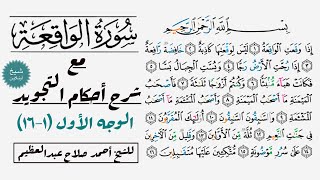 سُورَةُ الوَاقِعَة
مع
شرح أحكام التجويد
الوجه الأول (١-١٦)
للشيخ أحمد صلاح عبدالعظيم
بِسْمِ اللَّهِ الرَّحْمَٰنِ الرَّحِيمِ
إِذَا وَقَعَتِ الْوَاقِعَةُ ١ لَيْسَ لِوَقْعَتِهَا كَاذِبَةٌ ٢ خَافِضَةٌ رَّافِعَةٌ
٣ إِذَا رُجَّتِ الْأَرْضُ رَجًّا ٤ وَبُسَّتِ الْجِبَالُ بَسًّا ٥
فَكَانَتْ هَبَاءً مُّنبَثًّا ٦ وَكُنتُمْ أَزْوَاجًا ثَلَاثَةً ٧ فَأَصْحَابُ
الْمَيْمَنَةِ مَا أَصْحَابُ الْمَيْمَنَةِ ٨ وَأَصْحَابُ الْمَشْأَمَةِ مَا أَصْحَابُ
الْمَشْأَمَةِ ٩ وَالسَّابِقُونَ السَّابِقُونَ ١٠ أُولَٰئِكَ الْمُقَرَّبُونَ ١١
فِي جَنَّاتِ النَّعِيمِ ١٢ ثُلَّةٌ مِّنَ الْأَوَّلِينَ ١٣ وَقَلِيلٌ مِّنَ الْآخِرِينَ
١٤ عَلَىٰ سُرُرٍ مَّوْضُونَةٍ ١٥ مُّتَّكِئِينَ عَلَيْهَا مُتَقَابِلِينَ ١٦